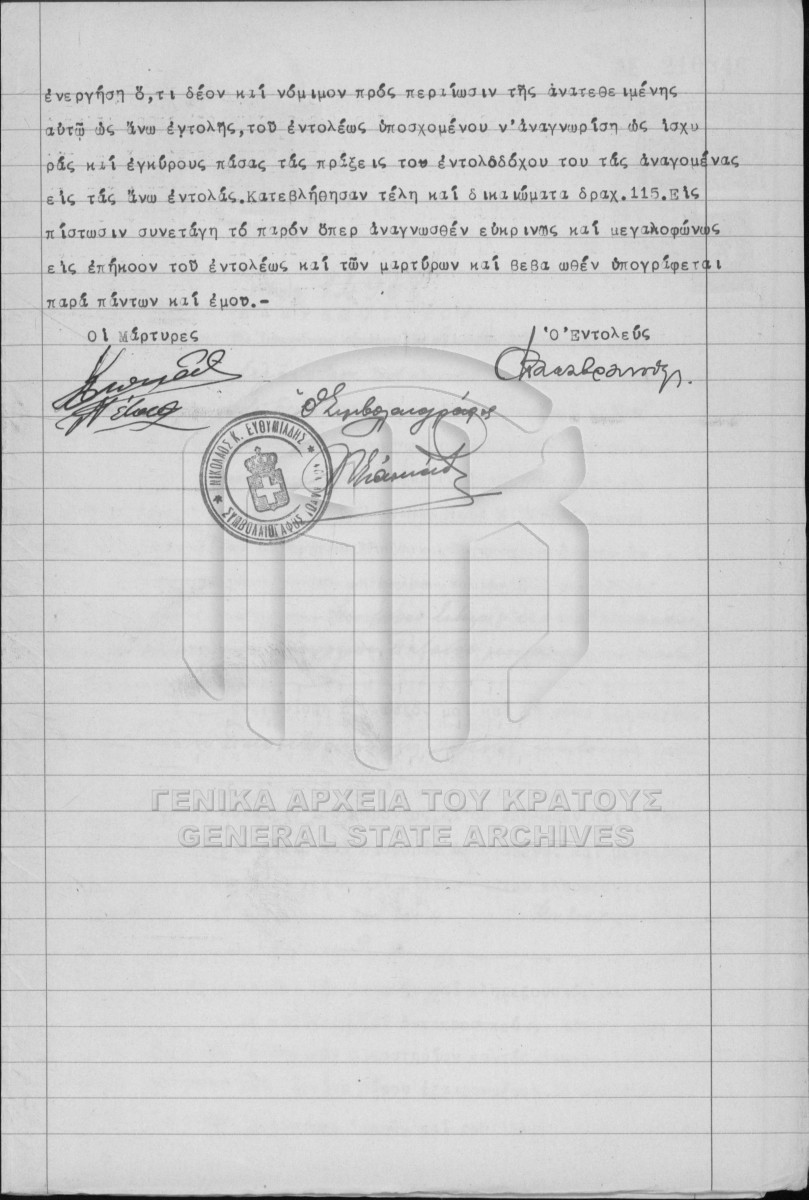 ἐνεργήση ὅ,τι δέον καί νόμιμον πρός περαίωσιν τῆς ἀνατεθειμένης
αὐτῷ ὡς ἄνω ἐντολῆς,τοῦ ἐντολέως ὑποσχομένου ν'ἀναγνωρίση ὡς ἰσχυ
ράς καί ἐγκύρους πάσας τάς πράξεις του ἐντολοδόχου του τάς ἀναγομένας
εἰς τάς ἄνω ἐντολάς.Κατεβλήθησαν τέλη καί δικαιώματα δραχ.115.Εἰς
πίστωσιν συνετάγη τό παρόν ὅπερ ἀναγνωσθέν εὐκρινῶς καί μεγαλοφώνως
εἰς ἐπήκοον τοῦ ἐντολέως καί τῶν μαρτύρων καί βεβα ωθέν ὑπογράφεται
παρά πάντων καί ἐμοῦ.-
Οἱ Μάρτυρες
Ὁ Ἐντολεύς
ὁ Συμβολαιογράφος
ΝΙΚΟΛΑΟΣ Κ. ΕΥΘΥΜΙΑΔΗΣ
ΣΥΜΒΟΛΑΙΟΓΡΑΦΟΣ
ΓΕΝΙΚΑ ΑΡΧΕΙΑ ΤΟΥ ΚΡΑΤΟΥΣ
GENERAL STATE ARCHIVES